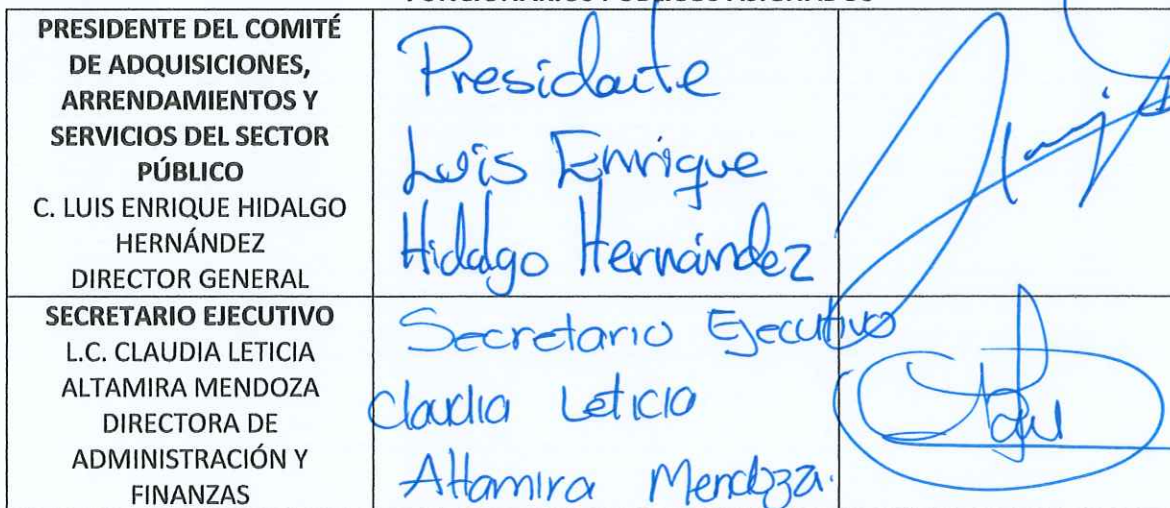 PRESIDENTE DEL COMITÉ
DE ADQUISICIONES,
ARRENDAMIENTOS Y
SERVICIOS DEL SECTOR
PÚBLICO
C. LUIS ENRIQUE HIDALGO
HERNÁNDEZ
DIRECTOR GENERAL
Presidente
Luis Enrique
Hidalgo Hernández
SECRETARIO EJECUTIVO
L.C. CLAUDIA LETICIA
ALTAMIRA MENDOZA
DIRECTORA DE
ADMINISTRACIÓN Y
FINANZAS
Secretario Ejecutivo
Claudia Leticia
Altamira Mendoza.